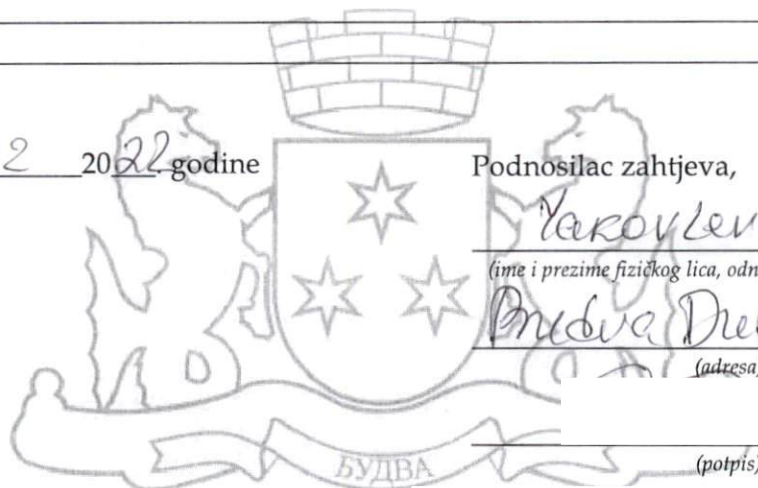 2 2022. godine
Podnosilac zahtjeva,
Yakovlev
(ime i prezime fizičkog lica, odn
Budva
(adresa
(potpis)
БУДВА